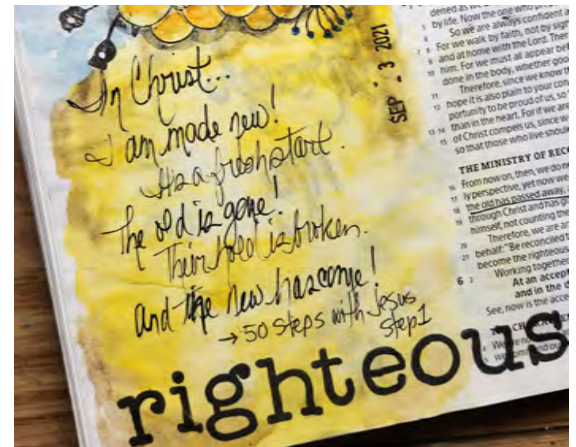 In Christ...
I am made new!
Its a fresh start.
The old is gone!
Their hold is broken.
and the new has come!
→ 50 Steps with Jesus
Step 1
SEP 3 2021
righteous
5 by life. Now the one who
So we are always confident a
7 For we walk by faith, not by sigh
8 and at home with the Lord. Ther
10 him. For we must all appear be
done in the body, whether goo
11 Therefore, since we know th
12 hope it is also plain to your con
portunity to be proud of us, so
13 14 than in the heart. For if we are
15 of Christ compels us, since w
so that those who live shoul
THE MINISTRY OF REC
16 From now on, then, we do ne
17 ly perspective, yet now we
18 the old has passed away,
19 through Christ and has g
himself, not counting the
20 Therefore, we are an
21 behalf: "Be reconciled t
become the righteous
6 2 Working together
At an accept
and in the d
See, now is the accep